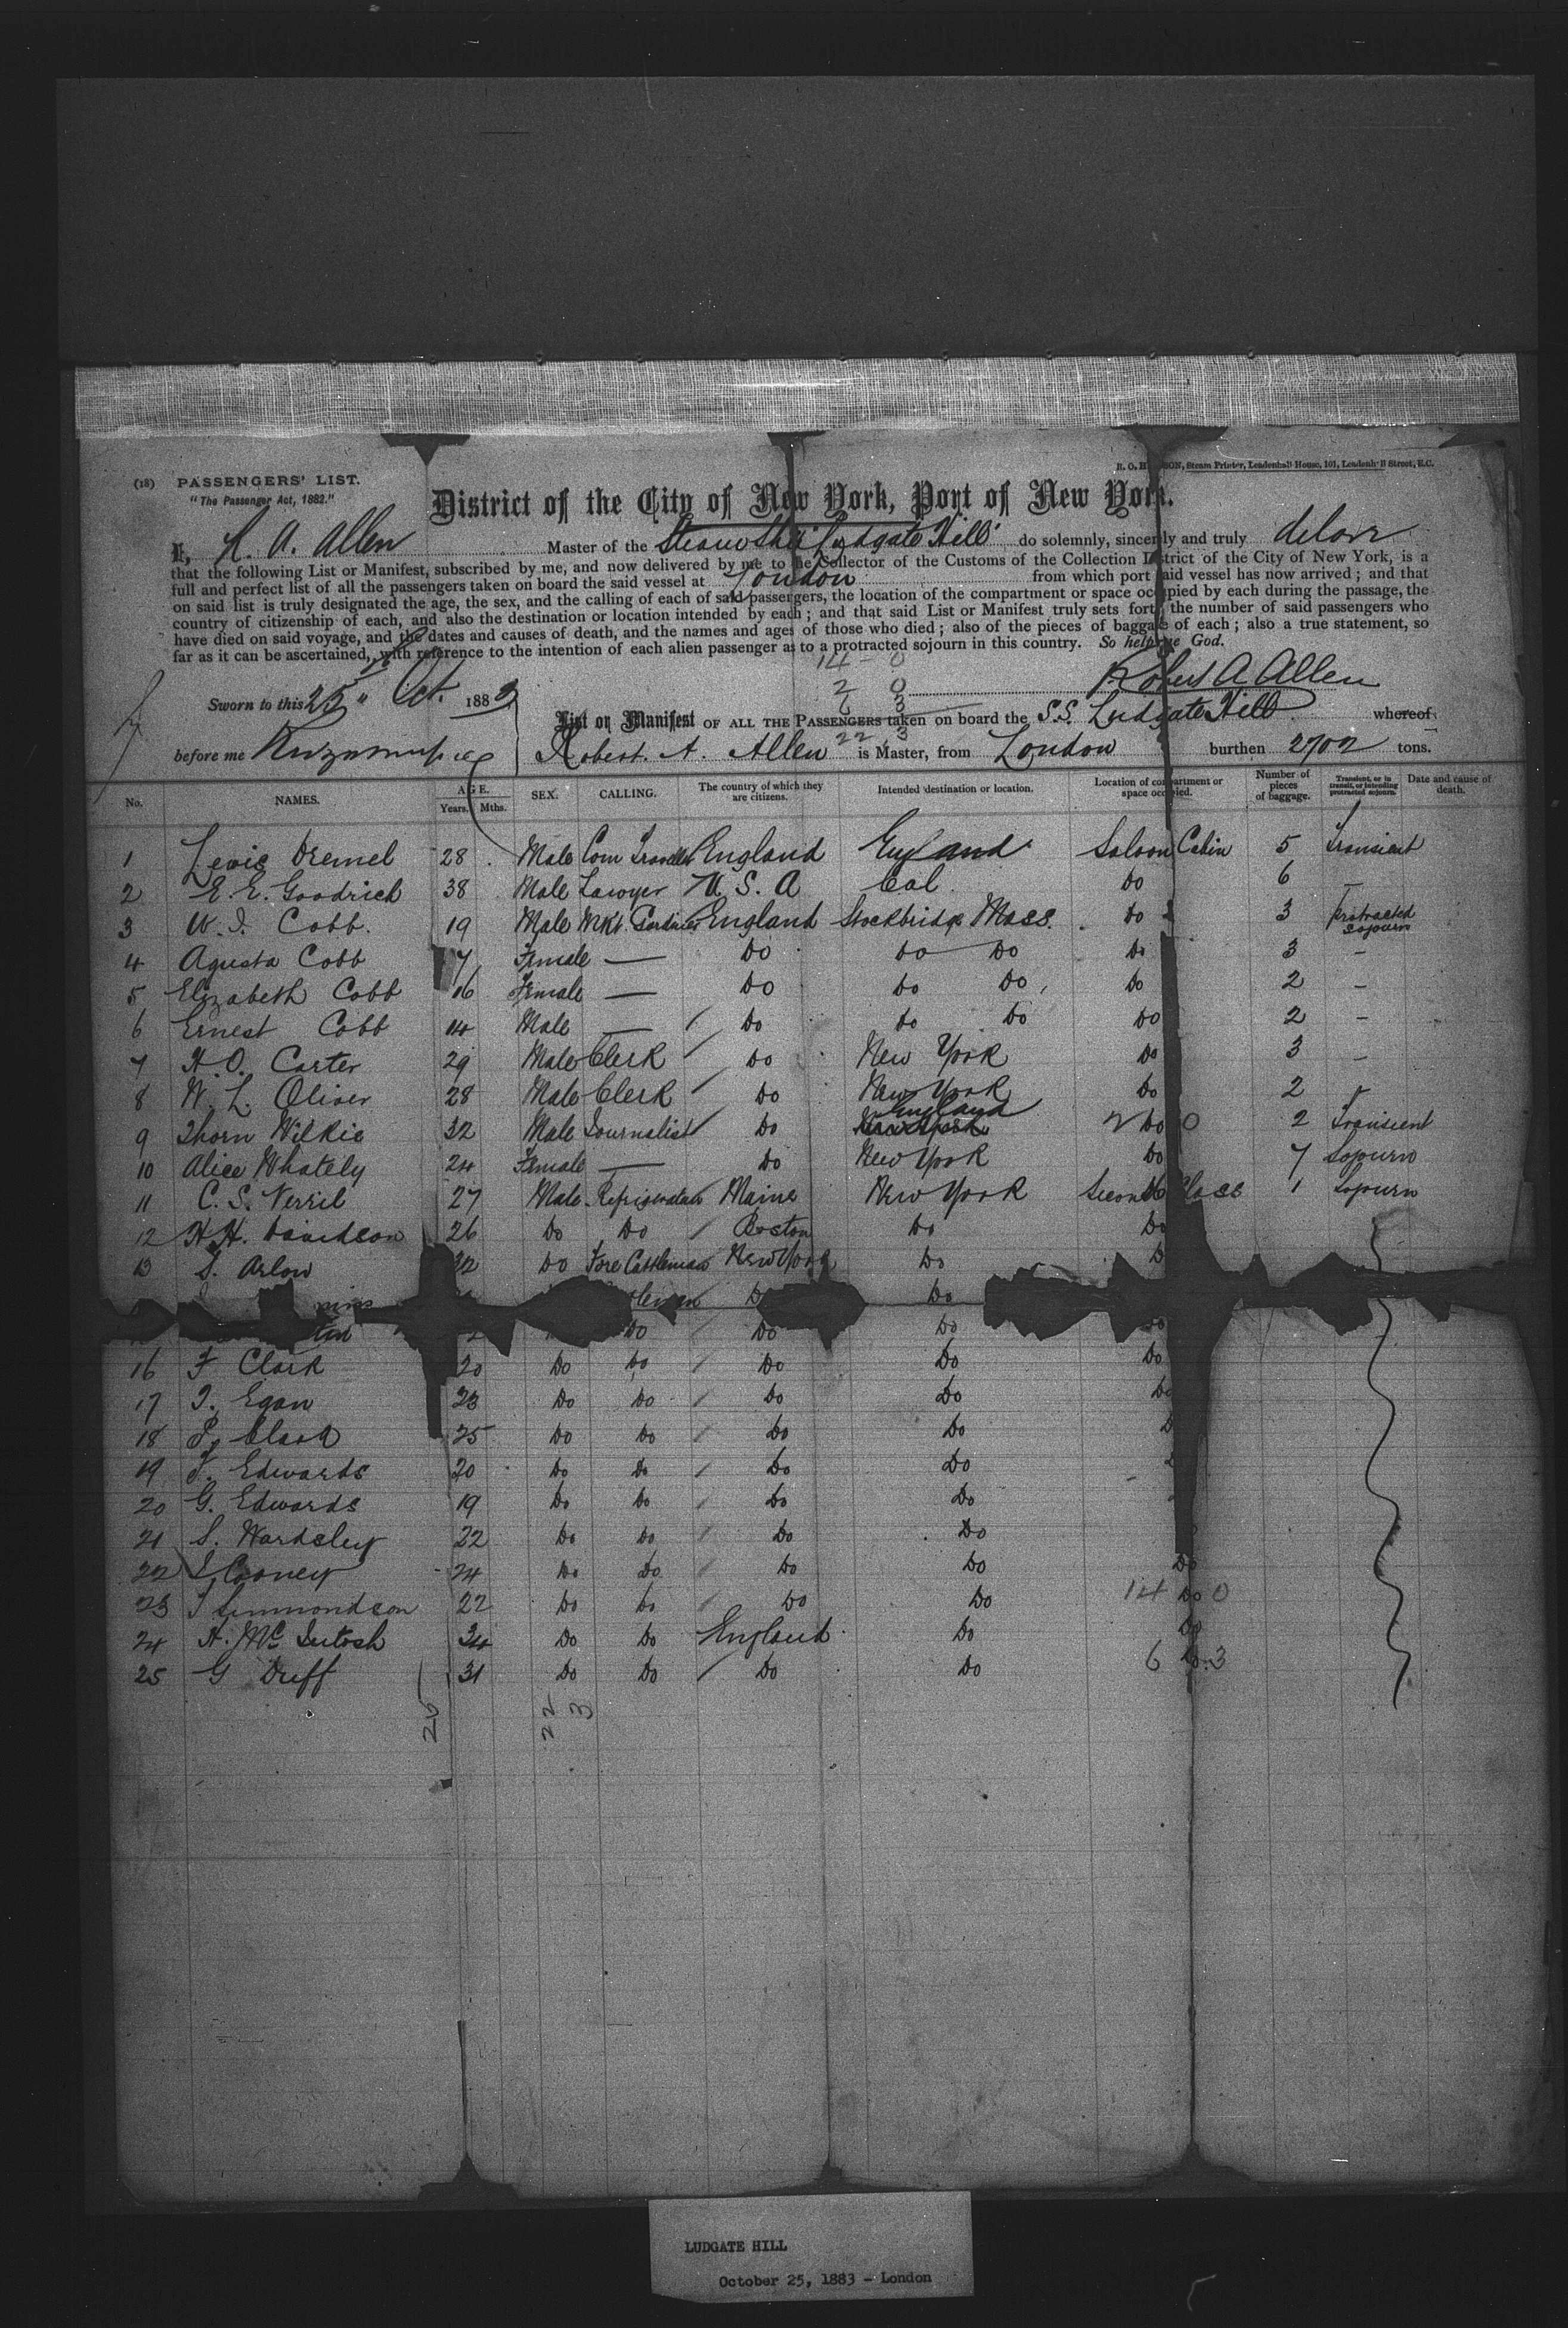 R. O. H SON, Steam Printer, Leadenhall House, 101, Leadenh ll Street, E.C.
(18) PASSENGERS' LIST.
"The Passenger Act, 1882."
District of the City of New York, Port of New York.
I, R. A. Allen Master of the Steam Ship Ludgate Hill do solemnly, sincerely and truly
that the following List or Manifest, subscribed by me, and now delivered by me to the Collector of the Customs of the Collection District of the City of New York, is a
full and perfect list of all the passengers taken on board the said vessel at London from which port said vessel has now arrived; and that
on said list is truly designated the age, the sex, and the calling of each of said passengers, the location of the compartment or space occupied by each during the passage, the
country of citizenship of each, and also the destination or location intended by each; and that said List or Manifest truly sets forth the number of said passengers who
have died on said voyage, and the dates and causes of death, and the names and ages of those who died; also of the pieces of baggage of each; also a true statement, so
far as it can be ascertained, with reference to the intention of each alien passenger as to a protracted sojourn in this country. So help me God.
14 - 0
2 0
6 3
22 . 3
Robert A. Allen
Sworn to this 25" Oct. 1883
List or Manifest OF ALL THE PASSENGERS taken on board the S.S. Ludgate Hill whereof
before me Robert. A. Allen is Master, from London burthen 2702 tons.
No. NAMES. AGE. Years. Mths. SEX. CALLING. The country of which they are citizens. Intended destination or location. Location of compartment or space occupied. Number of pieces of baggage. Transient, or in transit, or intending protracted sojourn. Date and cause of death.
1 Lewis Dremel 28 Male Com Traveller England England Saloon Cabin 5 Transient
2 E. E. Goodrich 38 Male Lawyer U. S. A Cal. Do 6 —
3 W. I. Cobb. 19 Male Mkt. Gardner England Stockbridge Mass. Do 3 Protracted Sojourn
4 Agusta Cobb 7 Female — Do Do Do Do 3 —
5 Elizabeth Cobb 16 Female — Do Do Do, Do 2 —
6 Ernest Cobb 14 Male — Do Do Do Do 2 —
7 H. O. Carter 29 Male Clerk Do New York Do 3 —
8 W. L. Oliver 28 Male Clerk Do New York Do 2
9 Thorn Wilkie 32 Male Journalist Do New York England 2 Do 0 2 Transient
10 Alice Whately 24 Female — Do New York Do 7 Sojourn
11 C. S. Verril 27 Male Refrigerator Maine New York Second Class 1 Sojourn
12 H. H. Davidson 26 Do Do Boston Do Do
13 S. Arlow 32 Do Fore Cattleman New York Do D
Do
Do Do Do Do
16 F Clark 20 Do Do Do Do Do
17 J. Egan 23 Do Do Do Do Do
18 P. Clark 25 Do Do Do Do
19 F. Edwards 20 Do Do Do Do
20 G. Edwards 19 Do Do Do Do
21 S. Wardsley 22 Do Do Do Do
22 J Cooney 24 Do Do Do Do Do
23 J Simmondson 22 Do Do Do Do 14 Do 0
24 A. McIntosh 34 Do Do England Do Do
25 G Duff 31 Do Do Do Do 6 Do 3
22 3
LUDGATE HILL
October 25, 1883 - London